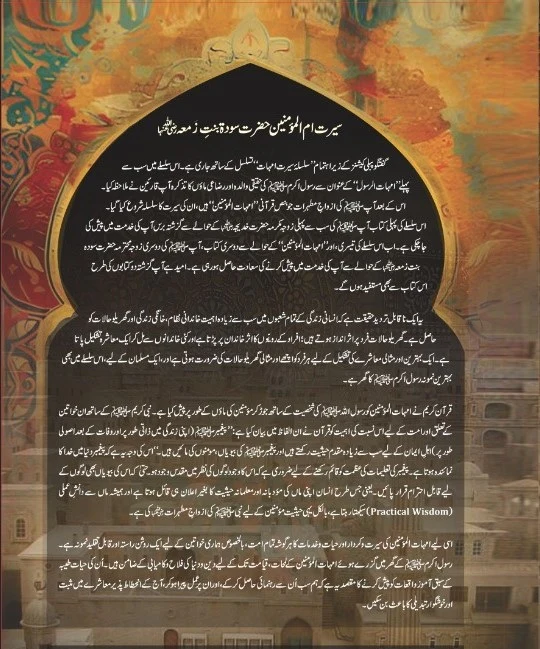 سیرت ام المؤمنین حضرت سودۃ بنتِ زمعہ رضی اللہ عنہا
گفتگو پبلی کیشنز کے زیر اہتمام ”سلسلۂ سیرت امہات“ تسلسل کے ساتھ جاری ہے۔ اس سلسلے میں سب سے
پہلے ”امہات الرسول“ کے عنوان سے رسول اکرم ﷺ کی حقیقی والدہ اور رضاعی ماؤں کا تذکرہ آپ قارئین نے ملاحظہ کیا۔
اس کے بعد آپ ﷺ کی ازواجِ مطہرات جو بنص قرآنی ”امہات المؤمنین“ ہیں، ان کی سیرت کا سلسلہ شروع کیا گیا۔
اس سلسلے کی پہلی کتاب آپ ﷺ کی سب سے پہلی زوجہ مکرمہ حضرت خدیجہ رضی اللہ عنہا کے حوالے سے گزشتہ برس آپ کی خدمت میں پیش کی
جا چکی ہے۔ اب اس سلسلے کی تیسری، اور ”امہات المؤمنین“ کے حوالے سے دوسری کتاب، آپ ﷺ کی دوسری زوجہ محترمہ حضرت سودہ
بنت زمعہ رضی اللہ عنہا کے حوالے سے آپ کی خدمت میں پیش کرنے کی سعادت حاصل ہو رہی ہے۔ امید ہے آپ گزشتہ دو کتابوں کی طرح
اس کتاب سے بھی مستفید ہوں گے۔
یہ ایک ناقابل تردید حقیقت ہے کہ انسانی زندگی کے تمام شعبوں میں سب سے زیادہ اہمیت خاندانی نظام، خانگی زندگی اور گھریلو حالات کو
حاصل ہے۔ گھریلو حالات فرد پر اثر انداز ہوتے ہیں؛ افراد کے رویوں کا اثر خاندان پر پڑتا ہے اور کئی خاندانوں سے مل کر ایک معاشرہ تشکیل پاتا
ہے۔ ایک بہترین اور مثالی معاشرے کی تشکیل کے لیے ہر فرد کو اچھے اور مثالی گھریلو حالات کی ضرورت ہوتی ہے اور، ایک مسلمان کے لیے، اس سلسلے میں بھی
بہترین نمونہ رسول اکرم ﷺ کا گھر ہے۔
قرآن کریم نے امہات المؤمنین کو رسول اللہ ﷺ کی شخصیت کے ساتھ جوڑ کر مؤمنین کی ماؤں کے طور پر پیش کیا ہے۔ نبی کریم ﷺ کے ساتھ ان خواتین
کے تعلق اور امت کے لیے اس نسبت کی اہمیت کو قرآن نے ان الفاظ میں بیان کیا ہے: ”پیغمبر ﷺ (اپنی زندگی میں ذاتی طور پر اور وفات کے بعد اصولی
طور پر) اہل ایمان کے لیے سب سے زیادہ مقدم حیثیت رکھتے ہیں اور پیغمبر ﷺ کی بیویاں، مومنوں کی مائیں ہیں۔“ اس کی وجہ یہ ہے کہ پیغمبر دنیا میں خدا کا
نمائندہ ہوتا ہے۔ پیغمبر کی تعلیمات کی عظمت کو قائم رکھنے کے لیے ضروری ہے کہ اس کا وجود لوگوں کی نظر میں مقدس وجود ہو۔ حتیٰ کہ اس کی بیویاں بھی لوگوں کے
لیے قابل احترام قرار پائیں۔ یعنی جس طرح انسان اپنی ماں کی مؤدبانہ اور معلمانہ حیثیت کا بغیر اعلان ہی قائل ہوتا ہے اور ہمیشہ ماں سے دانشِ عملی
(Practical Wisdom) سیکھتا رہتا ہے، بالکل یہی حیثیت مؤمنین کے لیے نبی ﷺ کی ازواجِ مطہرات کی ہے۔
اسی لیے امہات المؤمنین کی سیرت و کردار اور حیات و خدمات کا ہر گوشہ تمام امت، بالخصوص ہماری خواتین کے لیے ایک روشن راستہ اور قابلِ تقلید نمونہ ہے۔
رسول اکرم ﷺ کے گھر میں گزرے ہوئے امہات المؤمنین کے لمحات، قیامت تک کے لیے دین و دنیا کی فلاح و کامیابی کے ضامن ہیں۔ اُن کی حیات طیبہ
کے سبق آموز واقعات کو پیش کرنے کا مقصد یہ ہے کہ ہم سب اُن سے رہنمائی حاصل کر کے، اور ان پر عمل پیرا ہو کر، آج کے انحطاط پذیر معاشرے میں مثبت
اور خوشگوار تبدیلی کا باعث بن سکیں۔